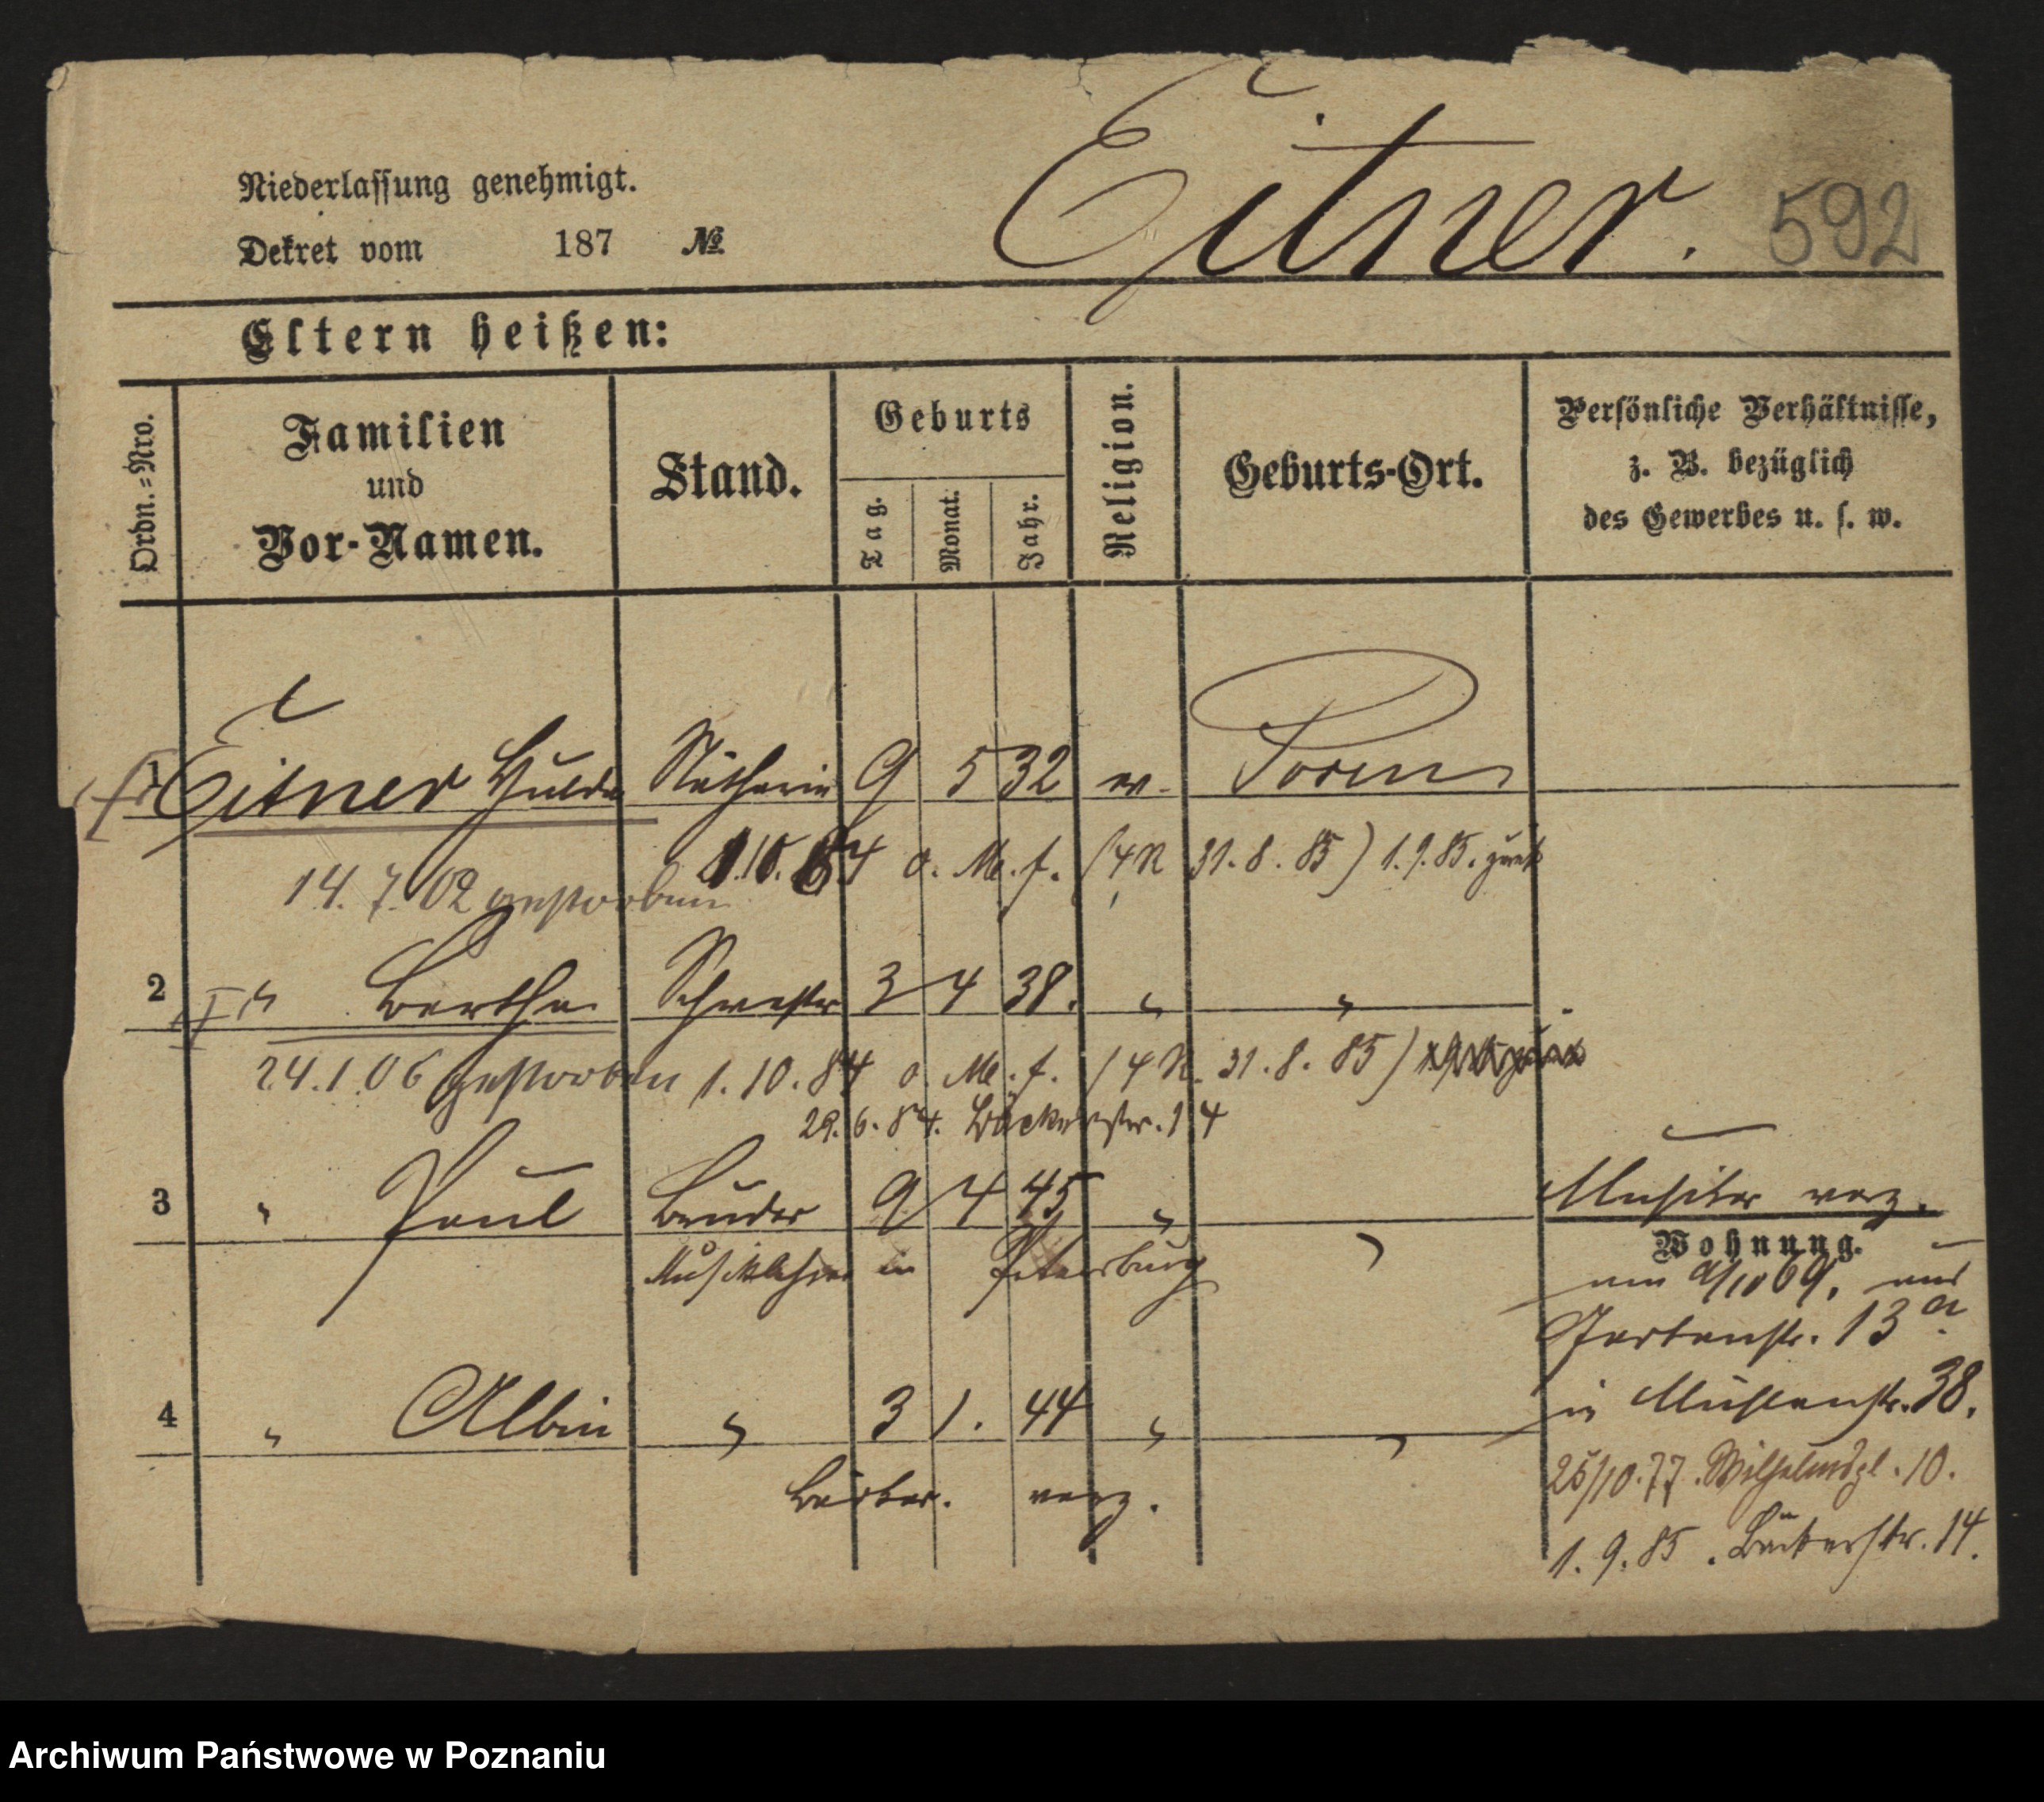 Niederlassung genehmigt.
Dekret vom 187 №
Eitner. 592
Eltern heißen:
Ordn.=Nro.
Familien
und
Vor-Namen.
Stand.
Geburts
Tag.
Monat.
Jahr.
Religion.
Geburts-Ort.
Persönliche Verhältnisse,
z. B. bezüglich
des Gewerbes u. s. w.
1 Eitner Hulda Näherin 9 5 32 ev. Posen
1.10.84 o. M. f. (4 N 31.8.85) 1.9.85. zurück
14.7.02 gestorben
2 " Bertha Schwester 3 4 38. " "
24.1.06 gestorben 1.10.84 o. M. f. (4 N. 31.8.85)
29.6.84. Bäckerstr. 14
3 " Paul Bruder 9 4 45 " "
Musiker verz.
Musiklehrer in Petersburg
Wohnung.
am /10 69. aus
Gartenstr. 13a.
in Mühlenstr. 38.
4 " Albin " 3 1. 44 " "
verz.
25/10.77. Wilhelmspl. 10.
1.9.85. Bäckerstr. 14.
Archiwum Państwowe w Poznaniu